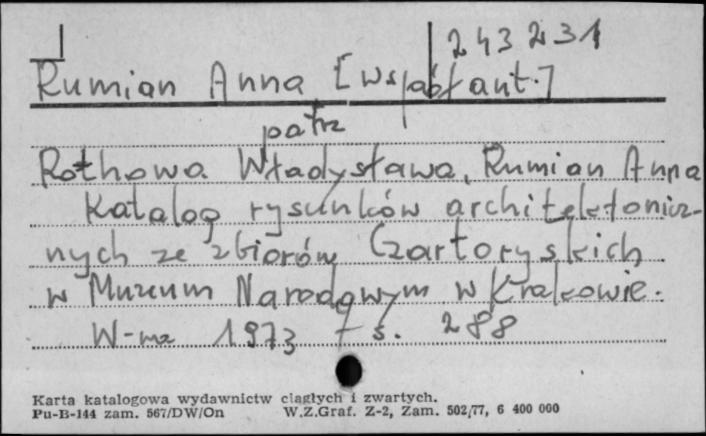 243231
Rumian Anna [współaut.]
patrz
Rothowa Władysława, Rumian Anna
Katalog rysunków architektonicz-
nych ze zbiorów Czartoryskich
w Muzeum Narodowym w Krakowie.
W-wa 1973 - s. 288
Karta katalogowa wydawnictw ciągłych i zwartych.
Pu-B-144 zam. 567/DW/On W.Z.Graf. Z-2, Zam. 502/77, 6 400 000